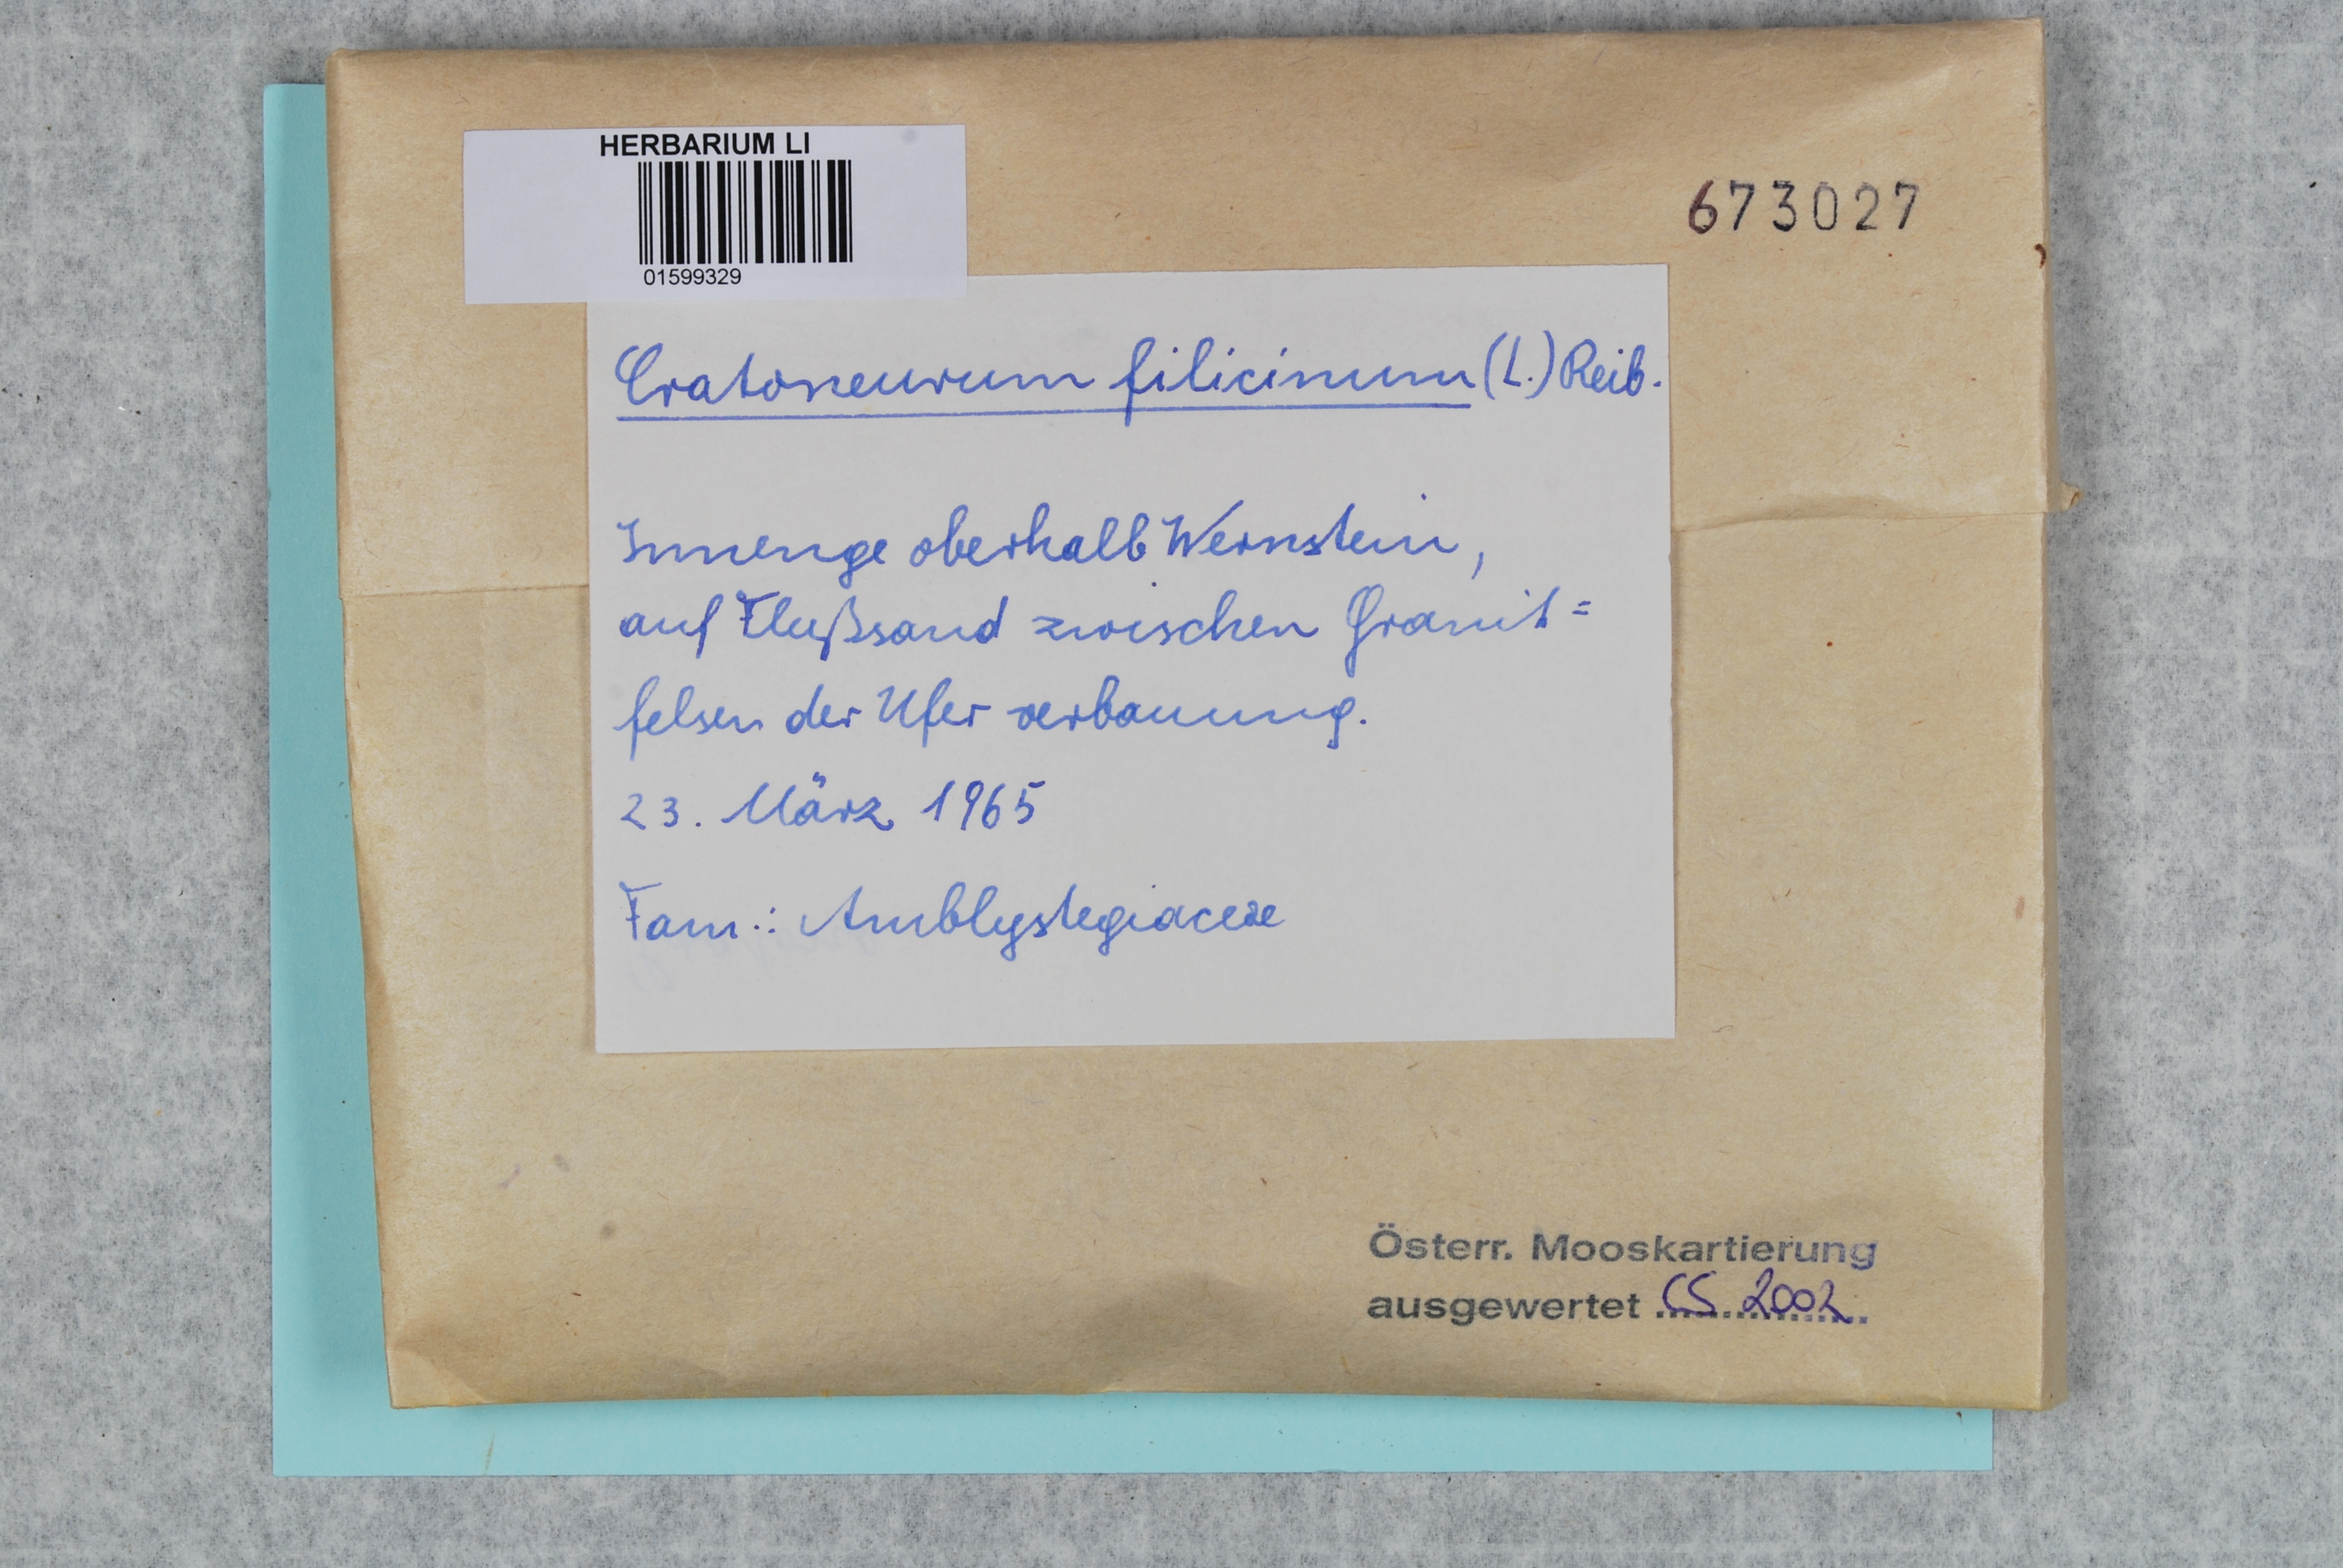 HERBARIUM LI
01599329
673027
Cratoneurum filicinum (L.) Reib.
Innenge oberhalb Wernstein,
auf Flußsand zwischen Granit=
felsen der Uferverbauung.
23. März 1965
Fam.: Amblystegiaceae
Österr. Mooskartierung
ausgewertet CS 2002